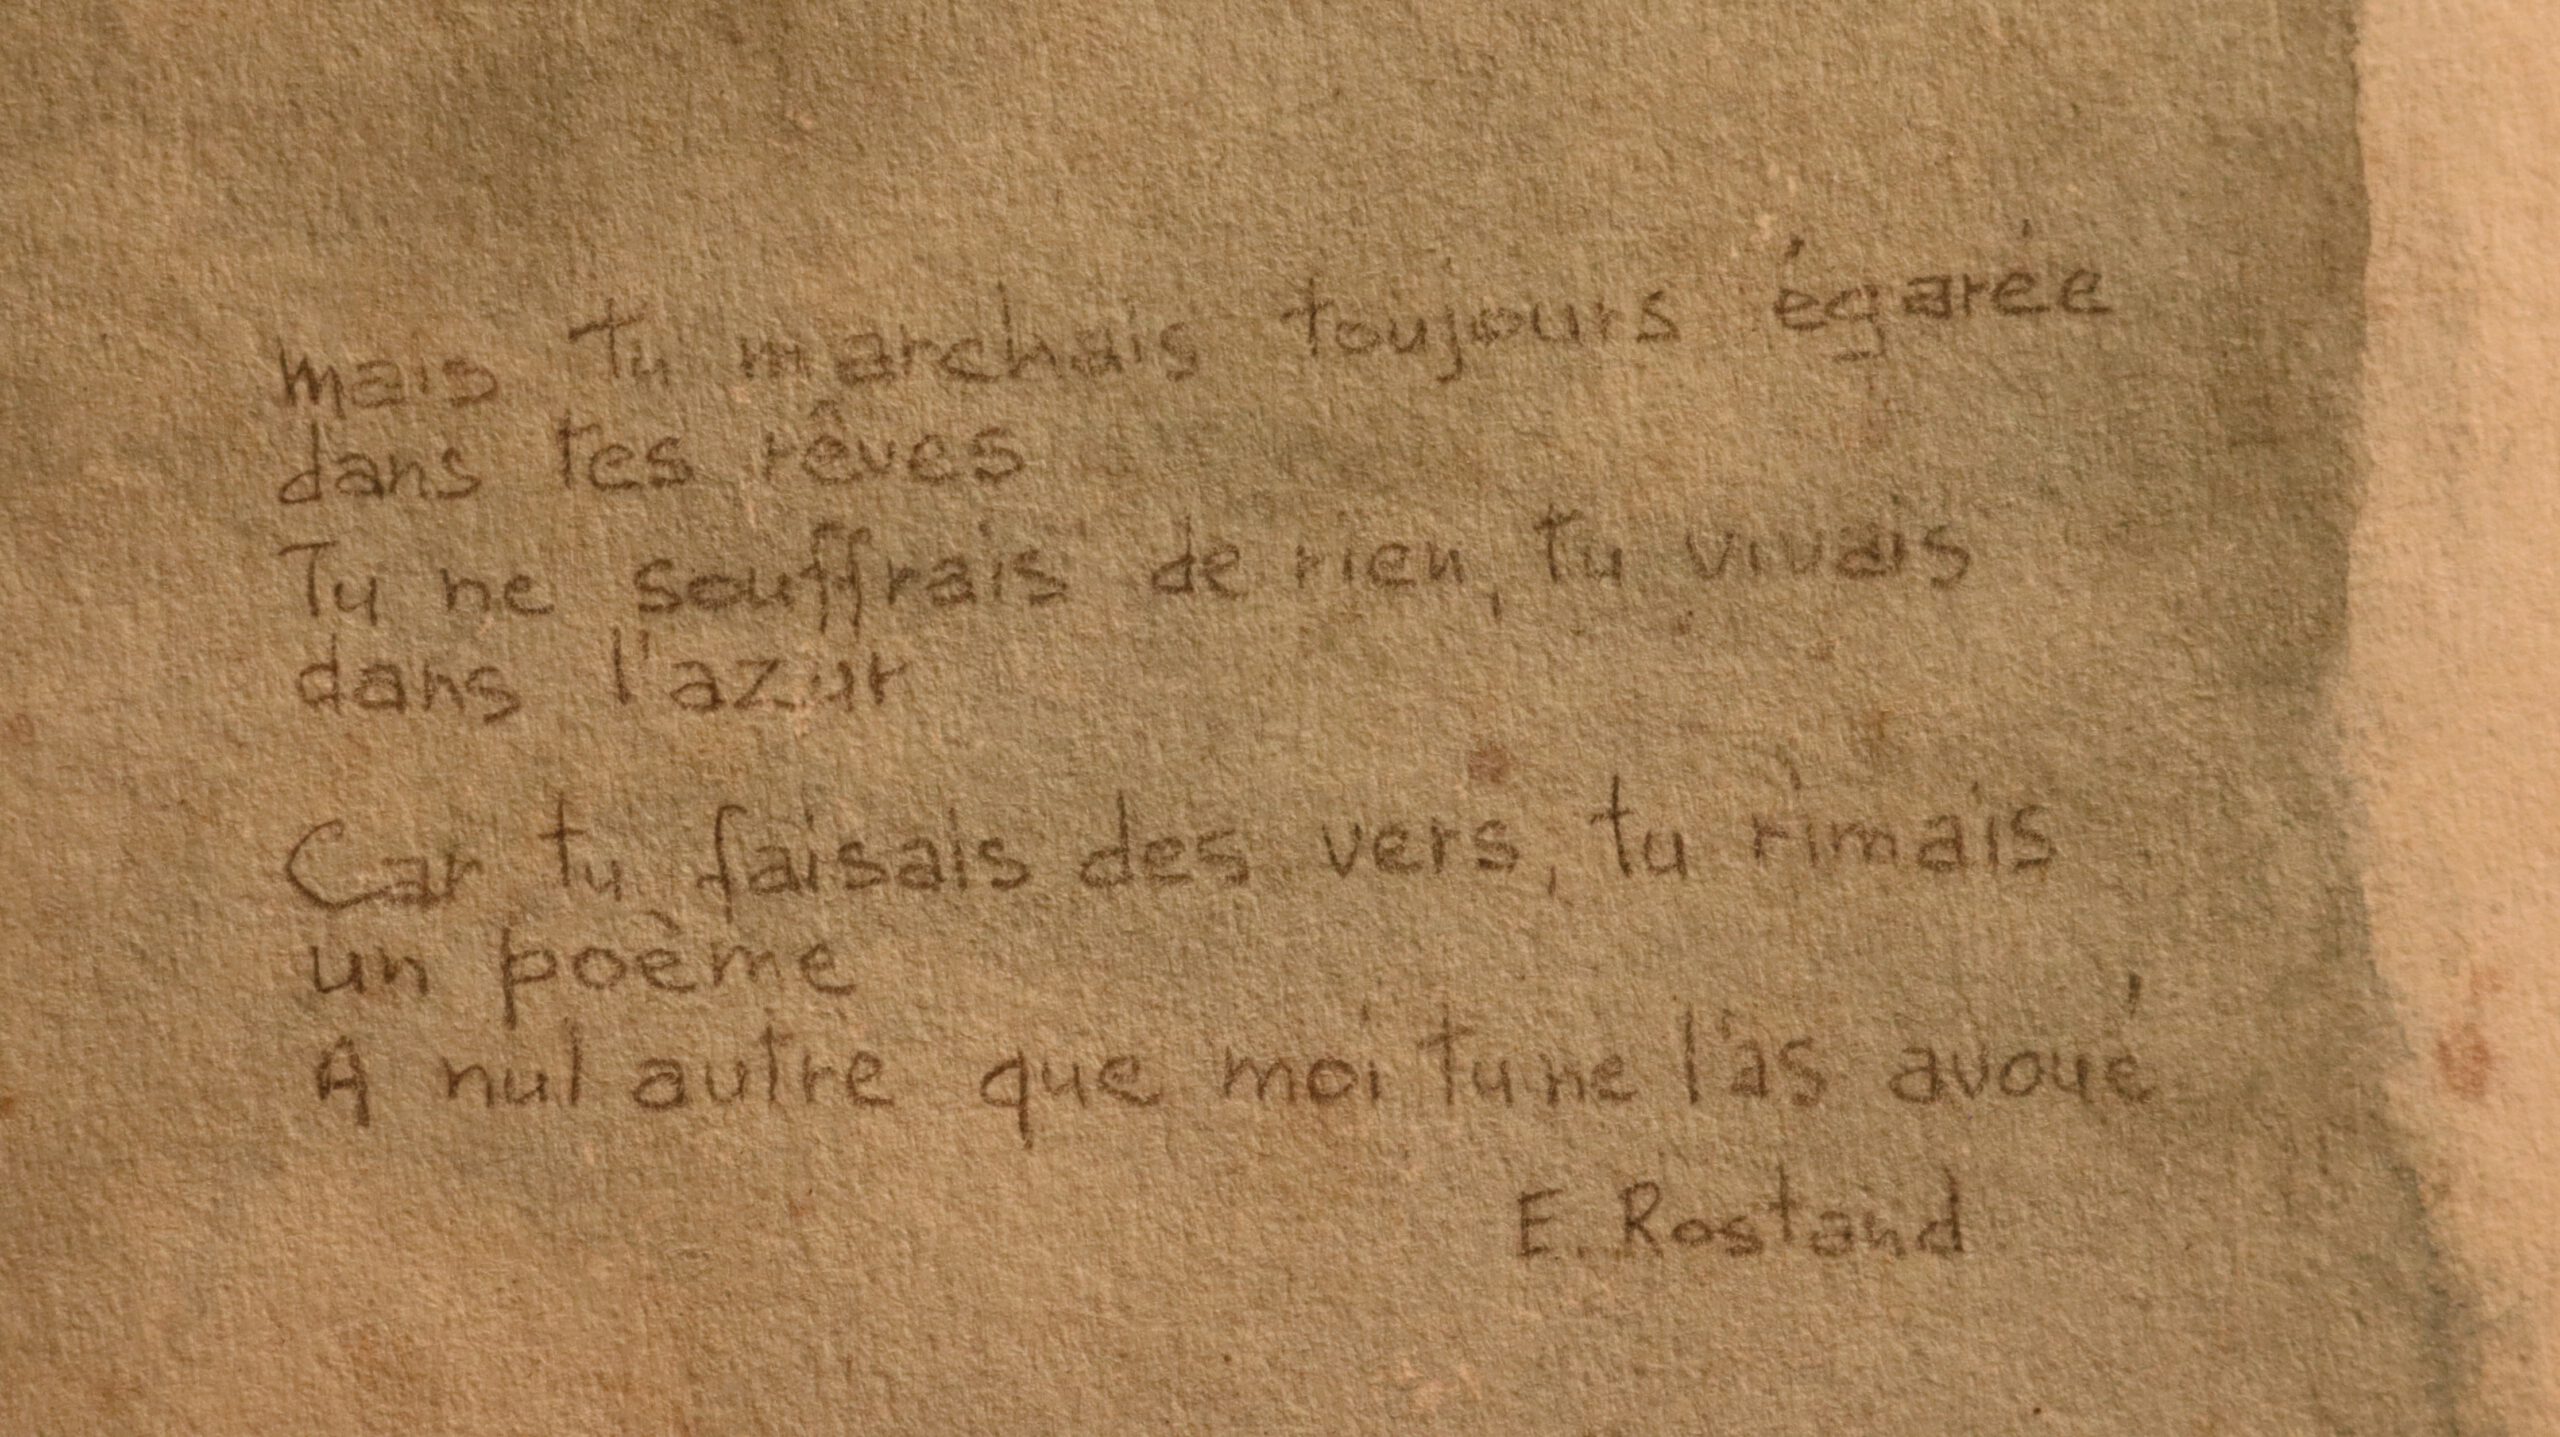 mais tu marchais toujours égarée
dans tes rêves
Tu ne souffrais de rien, tu vivais
dans l'azur
Car tu faisais des vers, tu rimais
un poème
A nul autre que moi tu ne l'as avoué
E. Rostand